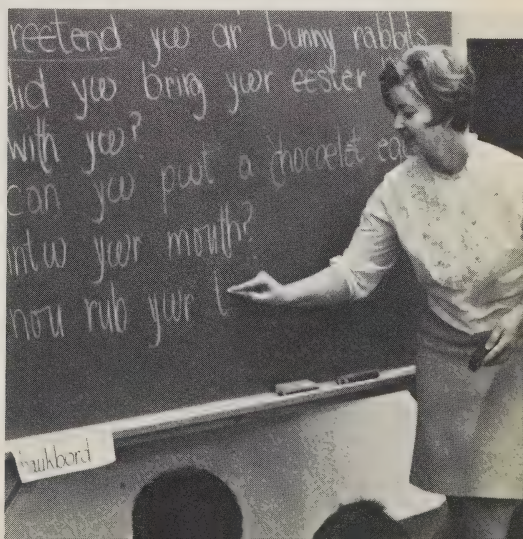 reetend yω ar bunny rabbits
did yω bring yωr eester
with yω?
can yω pωt a chocolet eg
intω yωr mouth?
nou rub yωr t
aukbord